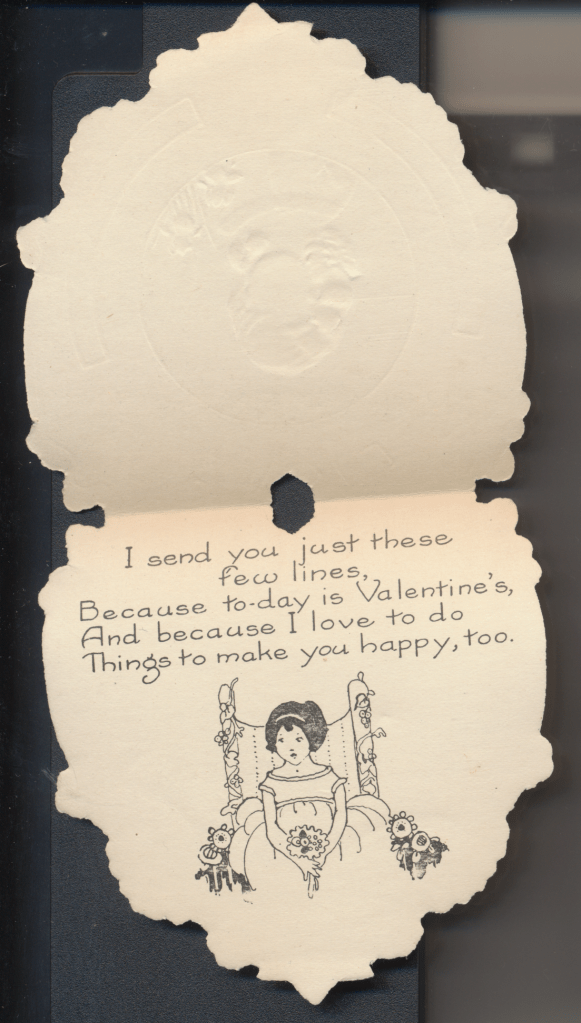 I send you just these
few lines,
Because to-day is Valentine's,
And because I love to do
Things to make you happy, too.